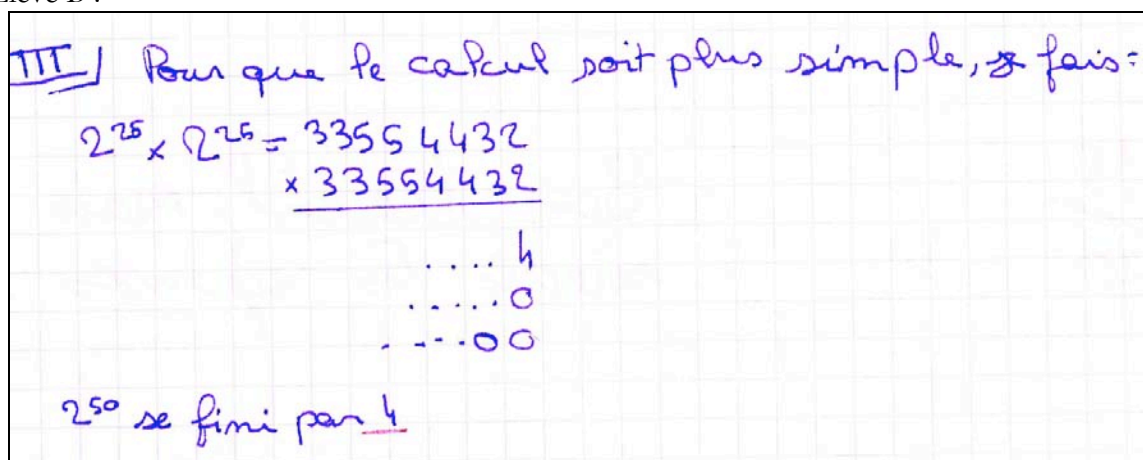 Elève B :
III) Pour que le calcul soit plus simple, je fais :
2^25 x 2^25 = 33554432
x 33554432
.... 4
..... 0
.... 00
2^50 se fini par 4